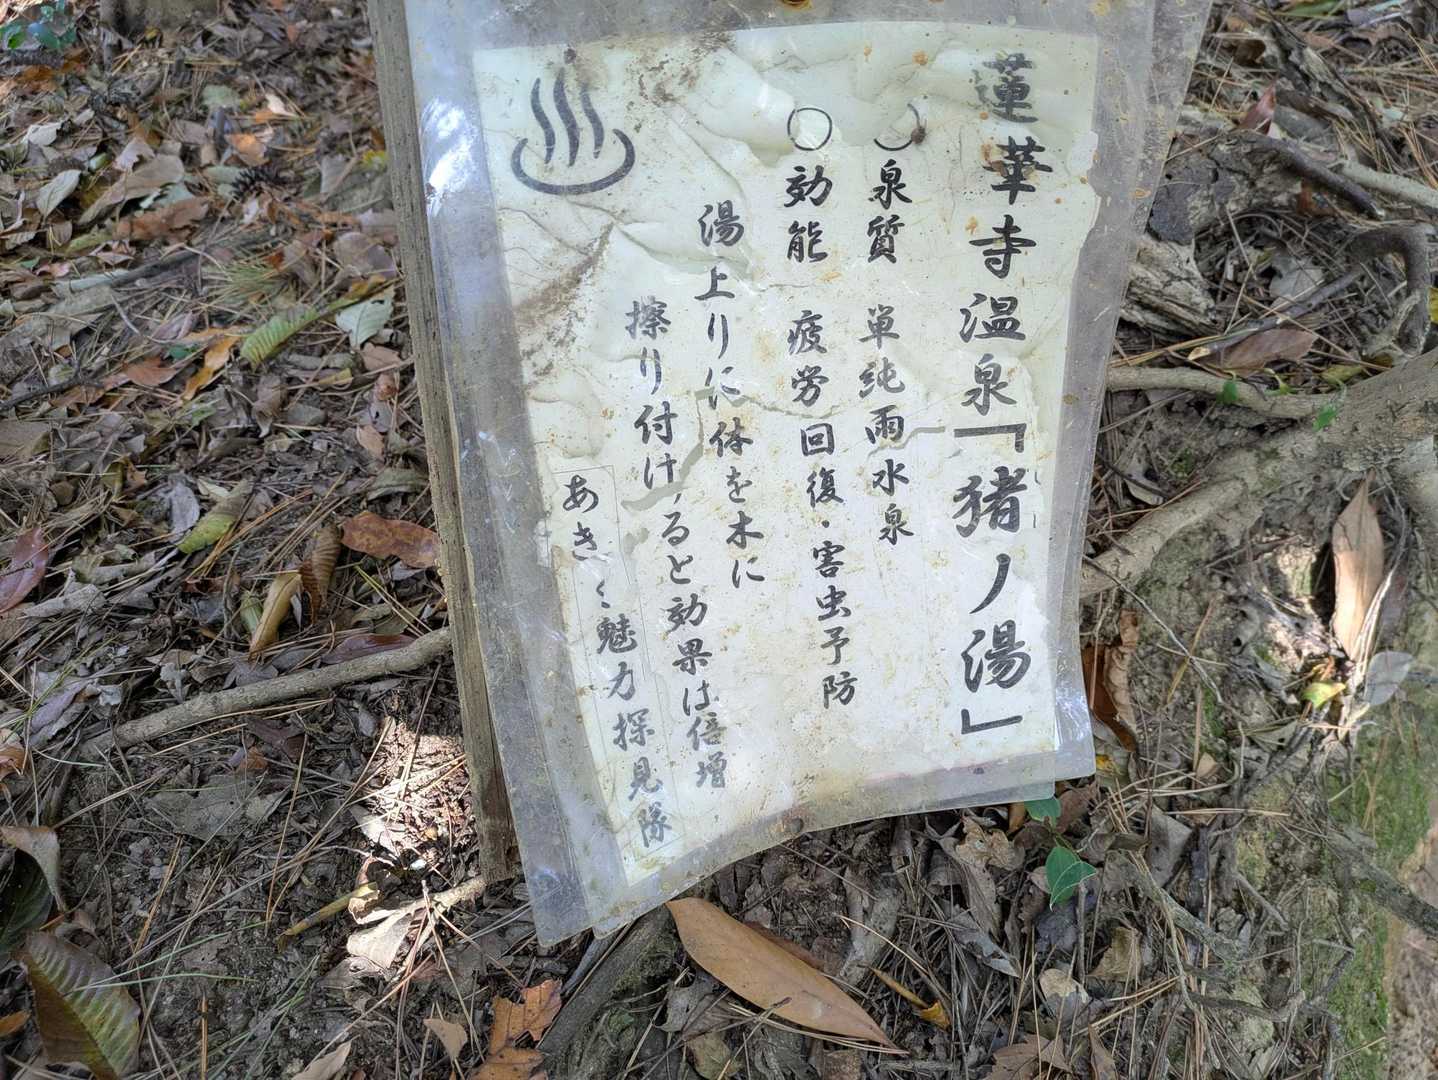 蓮華寺温泉「猪ノ湯」
○泉質 単純雨水泉
○効能 疲労回復・害虫予防
湯上りに体を木に
擦り付けると効果は倍増、
あき〻魅力探見隊